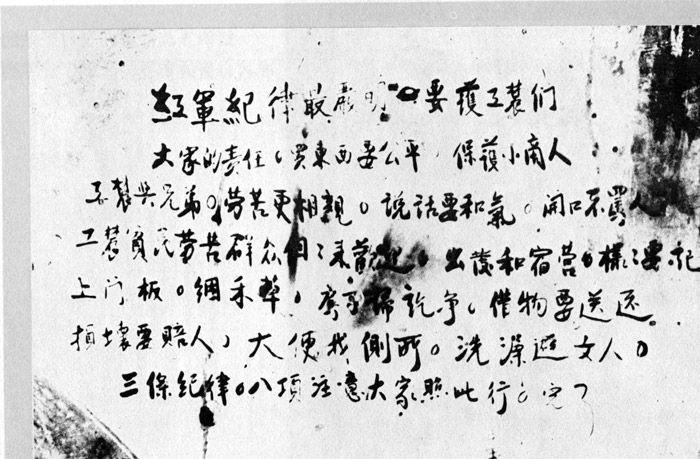 红軍紀律最嚴明。要護工農们
大家的責任。買東西要公平。保護小商人
工農與兄弟。劳苦更相親。説話要和氣。開口不罵人
工農貧民劳苦群众個ミ来歡迎。出發和宿营。樣ミ要記
上门板。綑禾草。房子掃乾净。借物要送还。
損壞要賠人，大便找側所。洗澡避女人。
三條紀律。八項注意大家照此行ミ完了